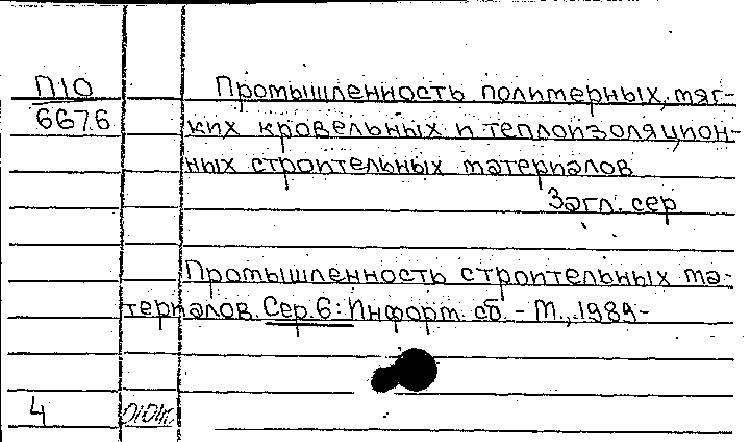 П10
6676
Промышленность полимерных, мяг-
ких кровельных и теплоизоляцион-
ных строительных материалов
Загл. сер.
Промышленность строительных ма-
териалов. Сер. 6: Информ. сб. - М., 1989-
4